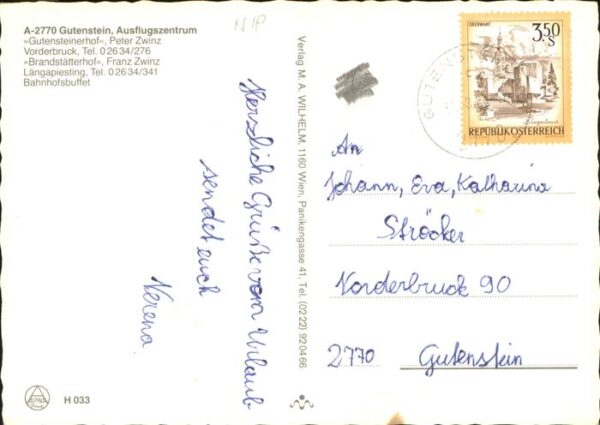 A-2770 Gutenstein, Ausflugszentrum
»Gutensteinerhof«, Peter Zwinz
Vorderbruck, Tel. 0 26 34/276
»Brandstätterhof«, Franz Zwinz
Längapiesting, Tel. 0 26 34/341
Bahnhofsbuffet
Herzliche Grüße vom Urlaub
sendet euch
Verena
H 033
Verlag M. A. WILHELM, 1160 Wien, Panikengasse 41, Tel. (0222) 920466
OBERWART
3.50
S
Burgenland
REPUBLIK ÖSTERREICH
An
Johann, Eva, Katharina
Ströcker
Vorderbruck 90
2770 Gutenstein